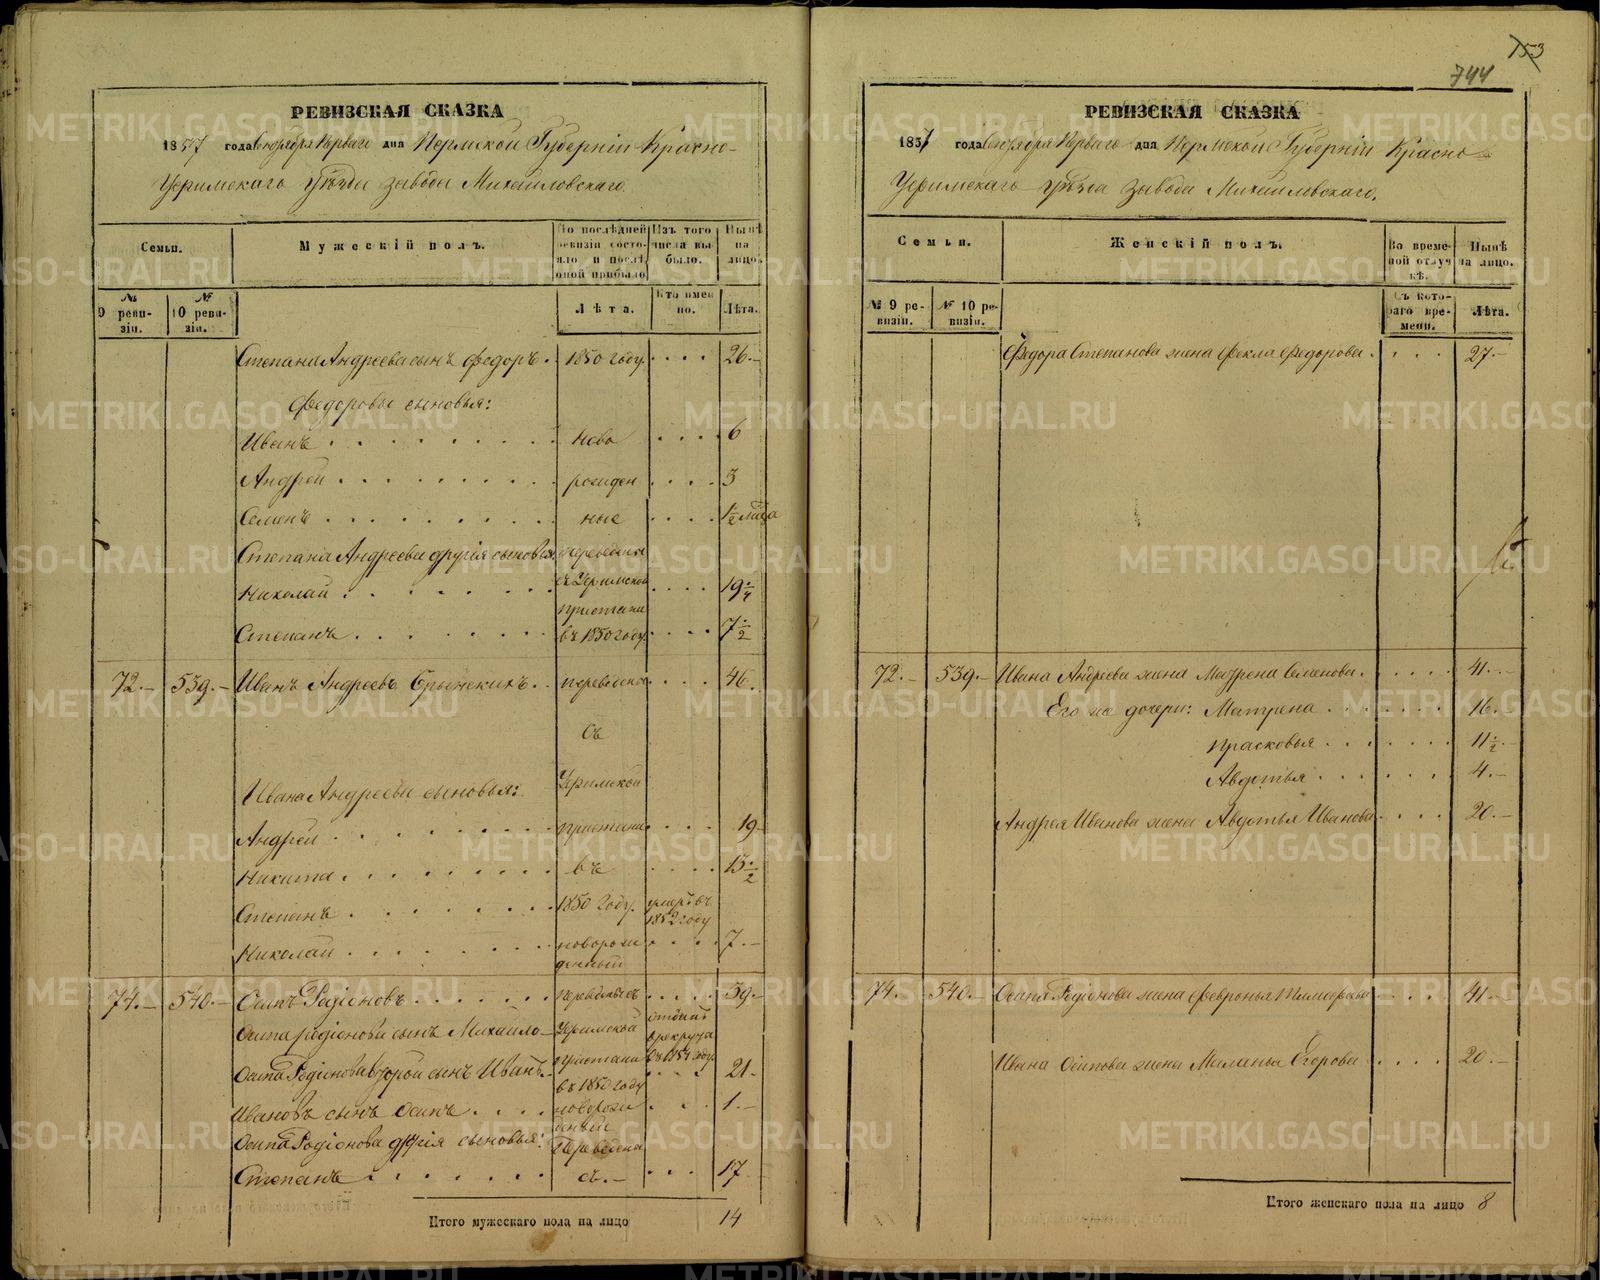 РЕВИЗСКАЯ СКАЗКА
1857 года Сентября Перваго дня Пермской Губерніи Красно-
Уфимскаго уѣзда завода Михайловскаго.
Семьи.
Мужескій полъ.
По послѣдней ревизіи состояло и послѣ оной прибыло
Изъ того числа выбыло.
Нынѣ на лицо.
№ 9 ревизіи.
№ 10 ревизіи.
Лѣта.
Кто именно.
Лѣта.
Степана Андреева сынъ Федоръ . 1850 году . . . . 26.—
Федоровы сыновья:
Иванъ . . . . . . . . ново . . . . 6
Андрей . . . . . . . . рожден . . . . 3
Семенъ . . . . . . . . ные . . . . 1/2
Степана Андреева другія сыновья переведены
Николай . . . . . . съ Уфимской . . . . 19
пристани
Степанъ . . . . . . въ 1850 году . . . . 7 1/2
72.— 539.— Иванъ Андреевъ . . переведены . . . 46.
Съ
Ивана Андреева сыновья: Уфимской
Андрей . . . . . . . пристани . . . . 19
Никита . . . . . . . въ . . . . 13 1/2
Степанъ . . . . . . . 1850 году. въ 1852 году
Николай . . . . . . . новорожденный . . . . 7.—
74.— 540.— Осипъ Родіоновъ . . . . . . переведены съ . . . . 39.—
Осипа Родіонова сынъ Михайло — Уфимской въ рекруты
Осипа Родіонова второй сынъ Иванъ — пристани въ 1854 году 21.
въ 1850 году
Ивановъ сынъ Осипъ . . . . новорожденный . . . 1.—
Осипа Родіонова другія сыновья: переведены
Степанъ . . . . . . . съ.— . . . 17
Итого мужескаго пола на лицо 14
153
744
РЕВИЗСКАЯ СКАЗКА
1857 года Сентября Перваго дня Пермской Губерніи Красно
Уфимскаго уѣзда завода Михайловскаго.
Семьи.
Женскій полъ.
Во временной отлучкѣ.
Нынѣ на лицо.
№ 9 ревизіи.
№ 10 ревизіи.
Съ котораго времени.
Лѣта.
Федора Степанова жена Фекла Федорова . . . . 27.—
72.— 539.— Ивана Андреева жена Матрена Семенова . . . . . 41.—
Его же дочери: Матрена . . . . . . . 16.
Прасковья . . . . . . . 11 1/2
Авдотья . . . . . . . 4.—
Андрея Иванова жена Авдотья Иванова . . . . 20.—
74. 540.— Осипа Родіонова жена Февронья Тимофеева . . . . 41.—
Ивана Осипова жена Маланья Егорова . . . . 20.—
Итого женскаго пола на лицо 8
METRIKI.GASO-URAL.RU